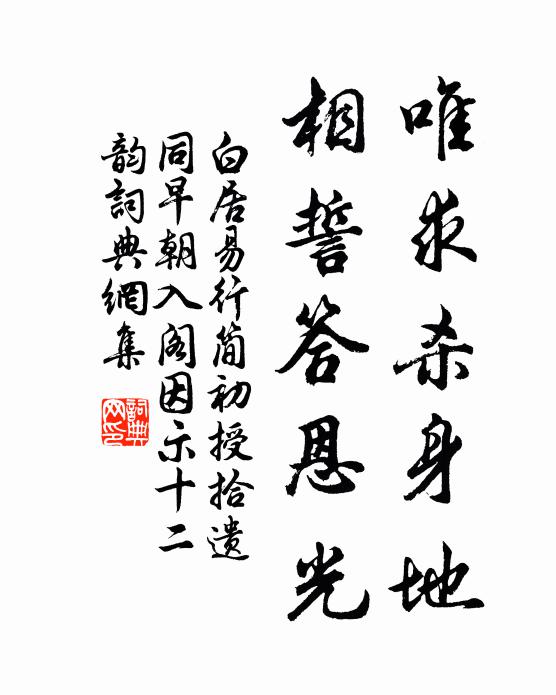 唯求杀身地
相誓答恩光
白居易行简初授拾遗
同早朝入阁因示十二
韵詞典網集
詞典
网印